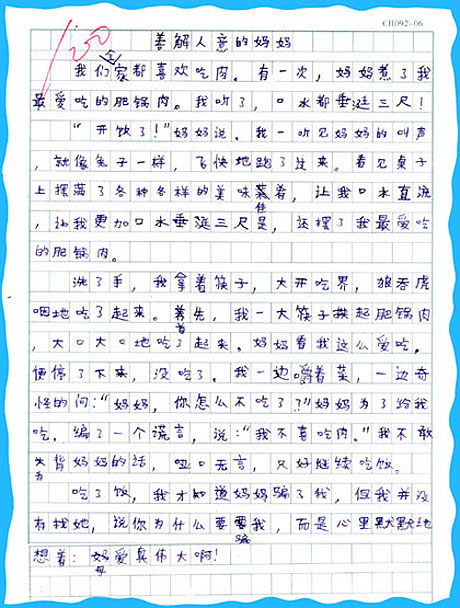 CH092-06
100
善解人意的妈妈
我们全家都喜欢吃肉。有一次，妈妈煮了我
最爱吃的肥锅肉。我听了，口水都垂涎三尺！
“开饭了！”妈妈说。我一听见妈妈的叫声
，就像兔子一样，飞快地跑了过来。看见桌子
上摆满了各种各样的美味佳肴，让我口水直流
，让我更加口水垂涎三尺是，还摆了我最爱吃
的肥锅肉。
洗了手，我拿着筷子，大开吃界，狼吞虎
咽地吃了起来。首先，我一大筷子拱起肥锅肉
，大口大口地吃了起来。妈妈看我这么爱吃，
便停了下来，没吃了。我一边嚼着菜，一边奇
怪的问：“妈妈，你怎么不吃了？”妈妈为了给我
吃，编了一个谎言，说：“我不喜吃肉。”我不敢
违背妈妈的话，哑口无言，只好继续吃饭。
吃了饭，我才知道妈妈骗了我，但我并没
有找她，说你为什么要骗我，而是心里默默地
想着：母爱真伟大啊！